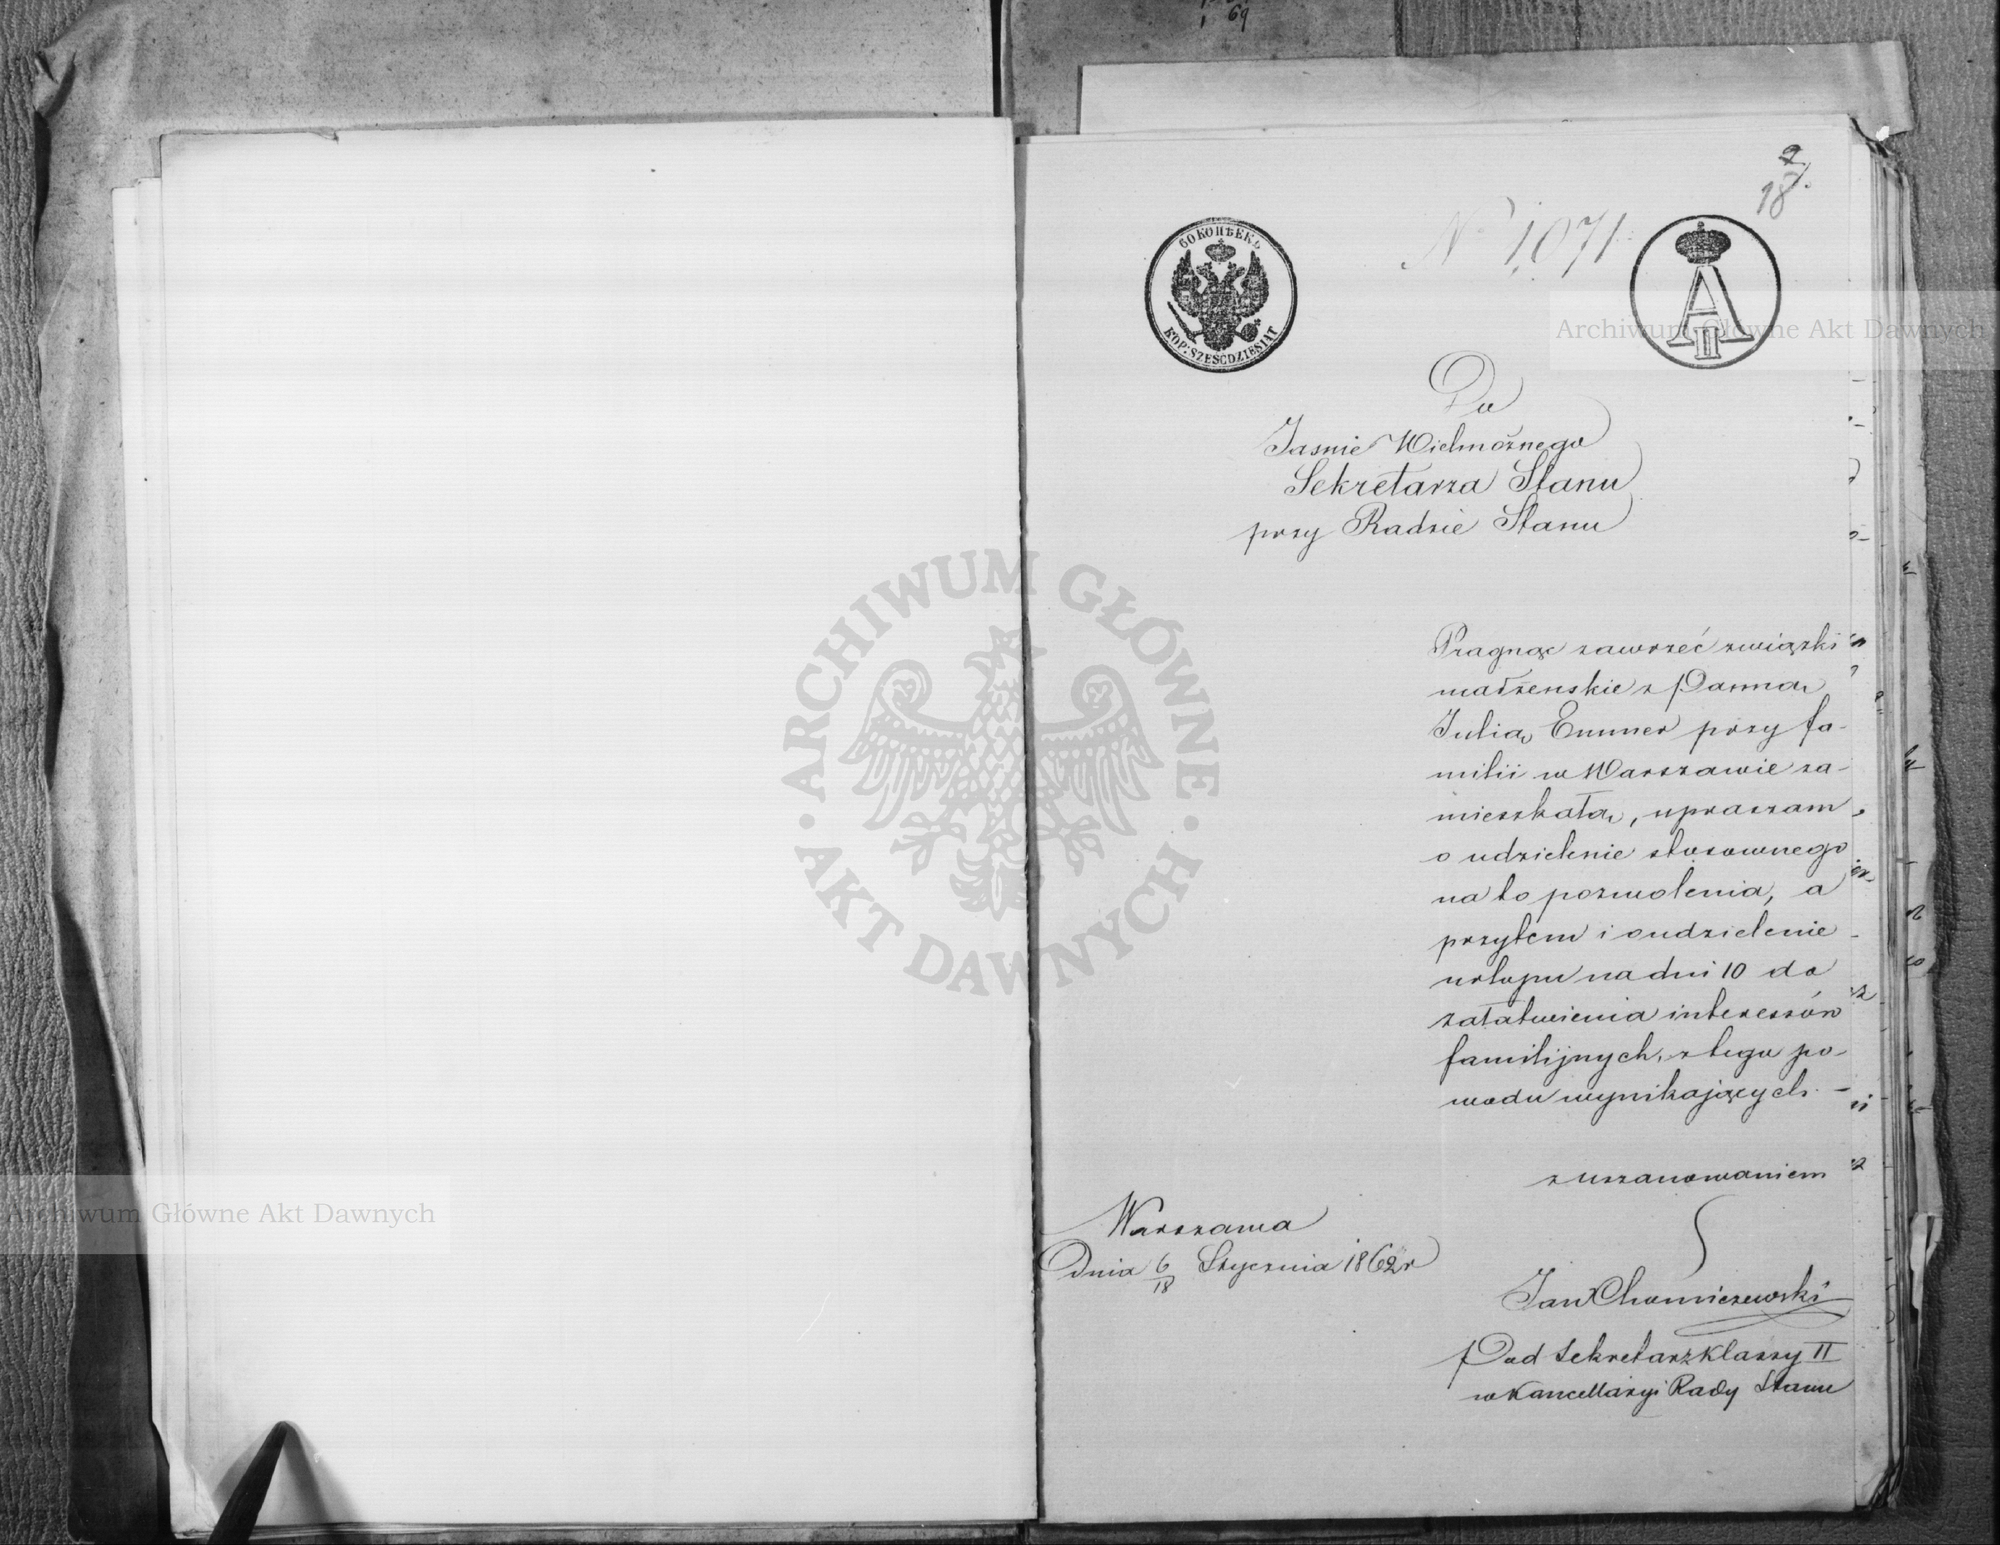 1 69
2
18
60 КОПѢЕКЪ
KOP: SZEŚĆDZIESIĄT
№ 1071
A II
Do
Jasnie Wielmożnego
Sekretarza Stanu
przy Radzie Stanu
Pragnąc zawrzeć związki
małżenskie z Panną
Julią Emmer przy fa-
milii w Warszawie za-
mieszkałą, upraszam
o udzielenie stosownego
na to pozwolenia, a
przytem i o udzielenie
urlopu na dni 10 do
załatwienia interessów
familijnych, z tego po-
wodu wynikających. –
z uszanowaniem
Warszawa
Dnia 6/18 Stycznia 1862 r
Jan Chomiczewski
Pod Sekretarz Klassy II
w Kancellaryi Rady Stanu
ARCHIWUM GŁÓWNE
AKT DAWNYCH
Archiwum Główne Akt Dawnych
Archiwum Główne Akt Dawnych